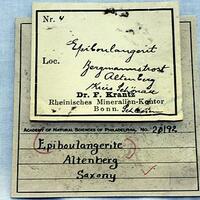 Nr. 4
Epiboulangerit
Loc.
Bergmannstrost
Altenberg
Kreis Schönau
Dr. F. Krantz
Rheinisches Mineralien-Kontor
Bonn.
ACADEMY OF NATURAL SCIENCES OF PHILADELPHIA, No. 20192
Epiboulangerite
Altenberg
Saxony